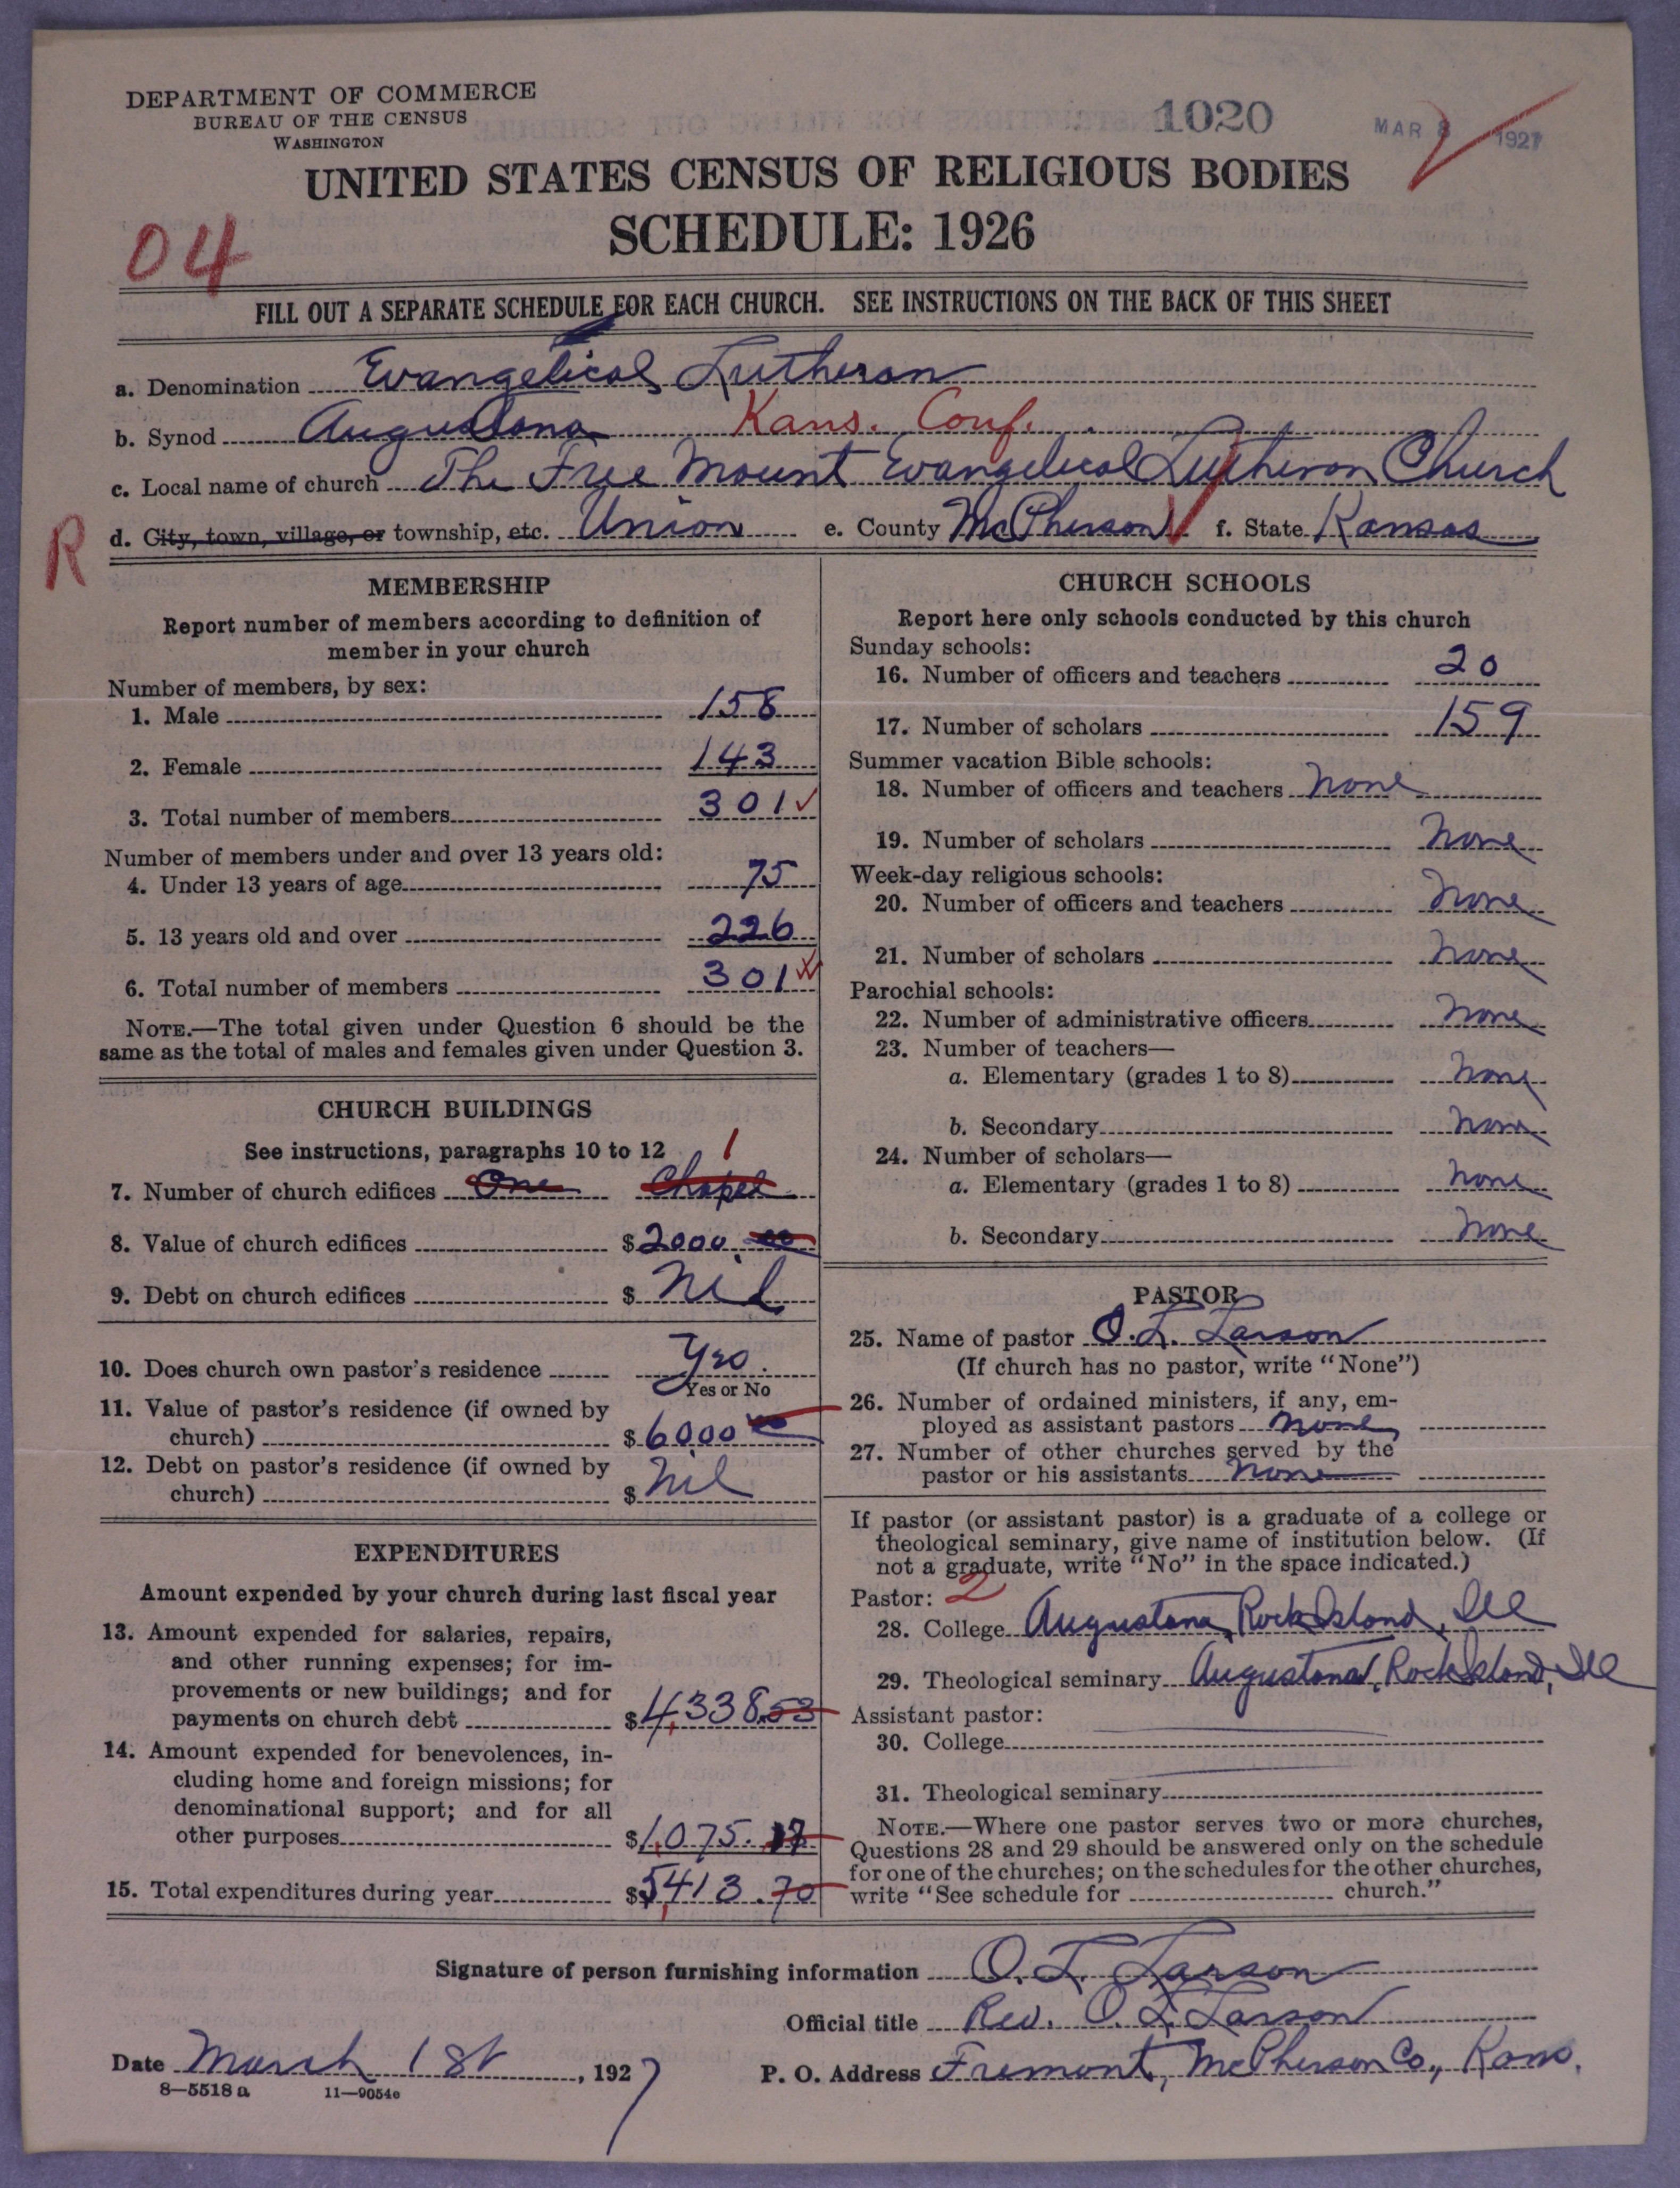 DEPARTMENT OF COMMERCE
BUREAU OF THE CENSUS
WASHINGTON
1020
MAR 8 1927
UNITED STATES CENSUS OF RELIGIOUS BODIES
SCHEDULE: 1926
04
FILL OUT A SEPARATE SCHEDULE FOR EACH CHURCH. SEE INSTRUCTIONS ON THE BACK OF THIS SHEET
a. Denomination Evangelical Lutheran
b. Synod Augustana Kans. Conf.
c. Local name of church The Free Mount Evangelical Lutheran Church
R
d. City, town, village, or township, etc. Union e. County McPherson f. State Kansas
MEMBERSHIP
Report number of members according to definition of
member in your church
Number of members, by sex:
1. Male 158
2. Female 143
3. Total number of members 301
Number of members under and over 13 years old:
4. Under 13 years of age 75
5. 13 years old and over 226
6. Total number of members 301
NOTE.—The total given under Question 6 should be the
same as the total of males and females given under Question 3.
CHURCH BUILDINGS
See instructions, paragraphs 10 to 12
1
7. Number of church edifices One Chapel
8. Value of church edifices $2000.00
9. Debt on church edifices $ Nil
10. Does church own pastor's residence Yes.
Yes or No
11. Value of pastor's residence (if owned by
church) $6000 00
12. Debt on pastor's residence (if owned by
church) $ Nil
EXPENDITURES
Amount expended by your church during last fiscal year
13. Amount expended for salaries, repairs,
and other running expenses; for im-
provements or new buildings; and for
payments on church debt $4,338.53
14. Amount expended for benevolences, in-
cluding home and foreign missions; for
denominational support; and for all
other purposes $1,075.17
15. Total expenditures during year $5,413.70
CHURCH SCHOOLS
Report here only schools conducted by this church
Sunday schools:
16. Number of officers and teachers 20
17. Number of scholars 159
Summer vacation Bible schools:
18. Number of officers and teachers None
19. Number of scholars None
Week-day religious schools:
20. Number of officers and teachers None
21. Number of scholars None
Parochial schools:
22. Number of administrative officers None
23. Number of teachers—
a. Elementary (grades 1 to 8) None
b. Secondary None
24. Number of scholars—
a. Elementary (grades 1 to 8) None
b. Secondary None
PASTOR
25. Name of pastor O. L. Larson
(If church has no pastor, write "None")
26. Number of ordained ministers, if any, em-
ployed as assistant pastors None
27. Number of other churches served by the
pastor or his assistants None
If pastor (or assistant pastor) is a graduate of a college or
theological seminary, give name of institution below. (If
not a graduate, write "No" in the space indicated.)
Pastor: 2
28. College Augustana, Rock Island, Ill
29. Theological seminary Augustana, Rock Island, Ill
Assistant pastor:
30. College
31. Theological seminary
NOTE.—Where one pastor serves two or more churches,
Questions 28 and 29 should be answered only on the schedule
for one of the churches; on the schedules for the other churches,
write "See schedule for church."
Signature of person furnishing information O. L. Larson
Official title Rev. O. L. Larson
Date March 1st, 1927 P. O. Address Fremont, McPherson Co., Kans.
8—5518 a 11—9054e